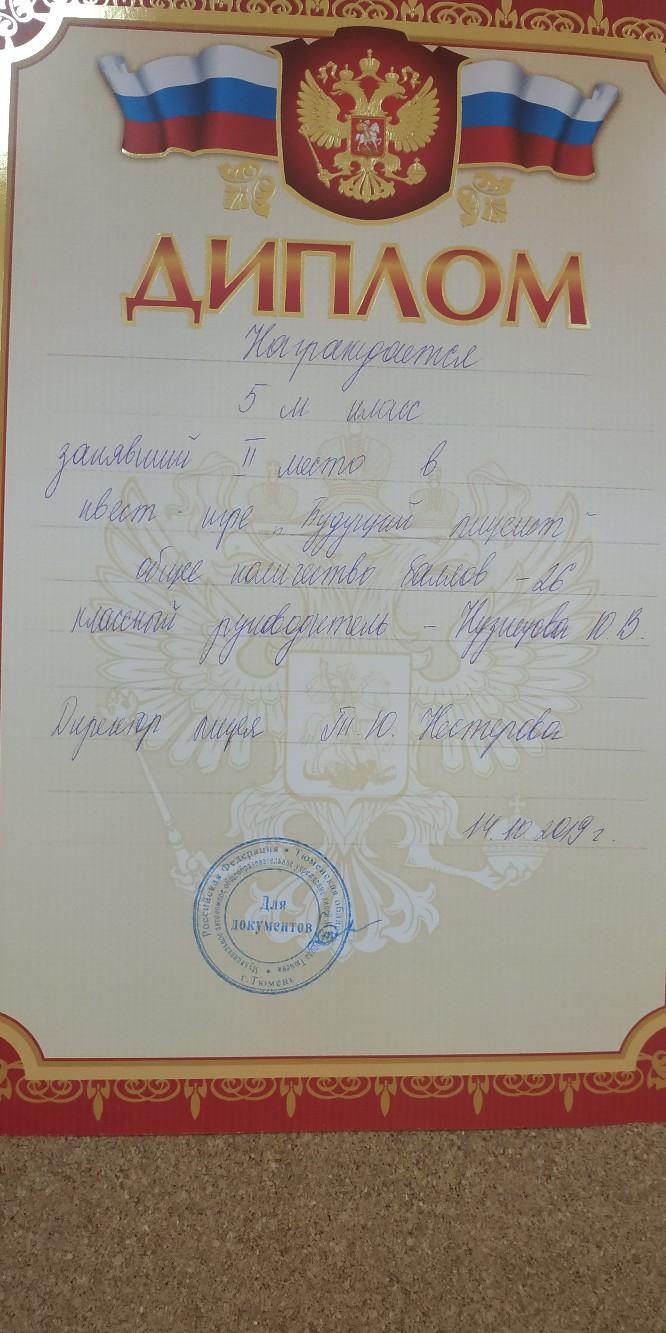 ДИПЛОМ
Награждается
5 м класс
занявший II место в
квест - игре „Будущий лицеист"
общее количество баллов - 26
классный руководитель - Кузнецова Ю.В.
Директор лицея Т.Ю. Нестерова
14.10.2019 г.
Российская Федерация • Тюменская область
Муниципальное автономное общеобразовательное учреждение города Тюмени
Для
документов
г. Тюмень